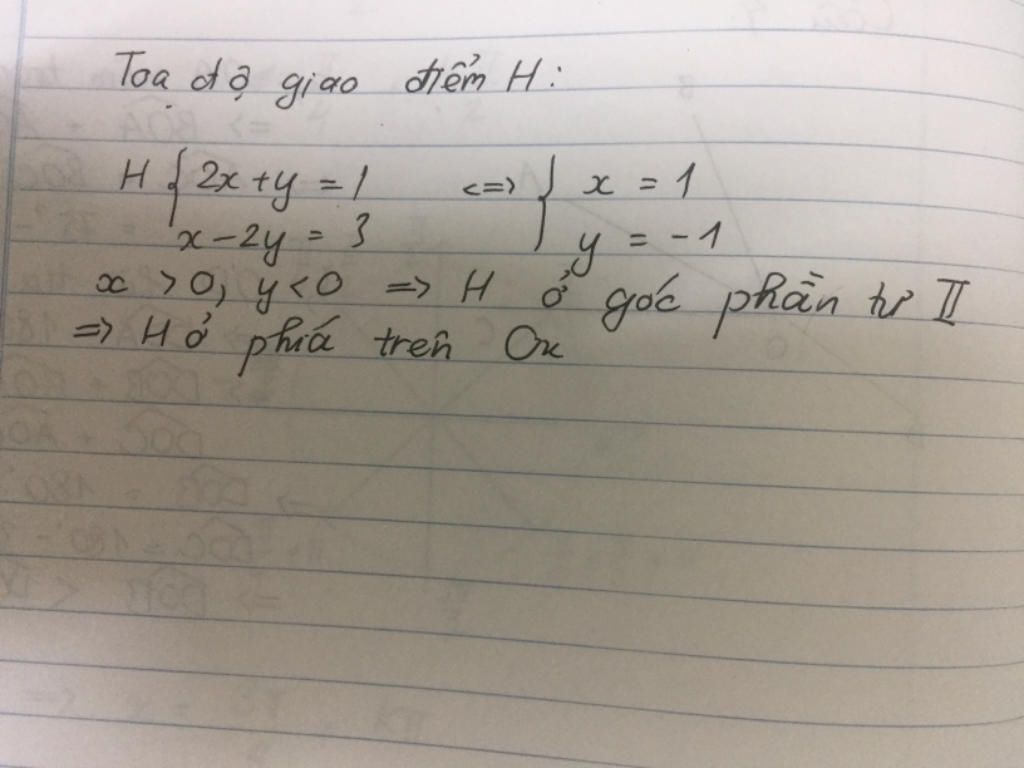 Toạ độ giao điểm H:
H { 2x + y = 1 <=> { x = 1
x - 2y = 3 y = -1
x > 0, y < 0 => H ở góc phần tư II
=> H ở phía trên Ox